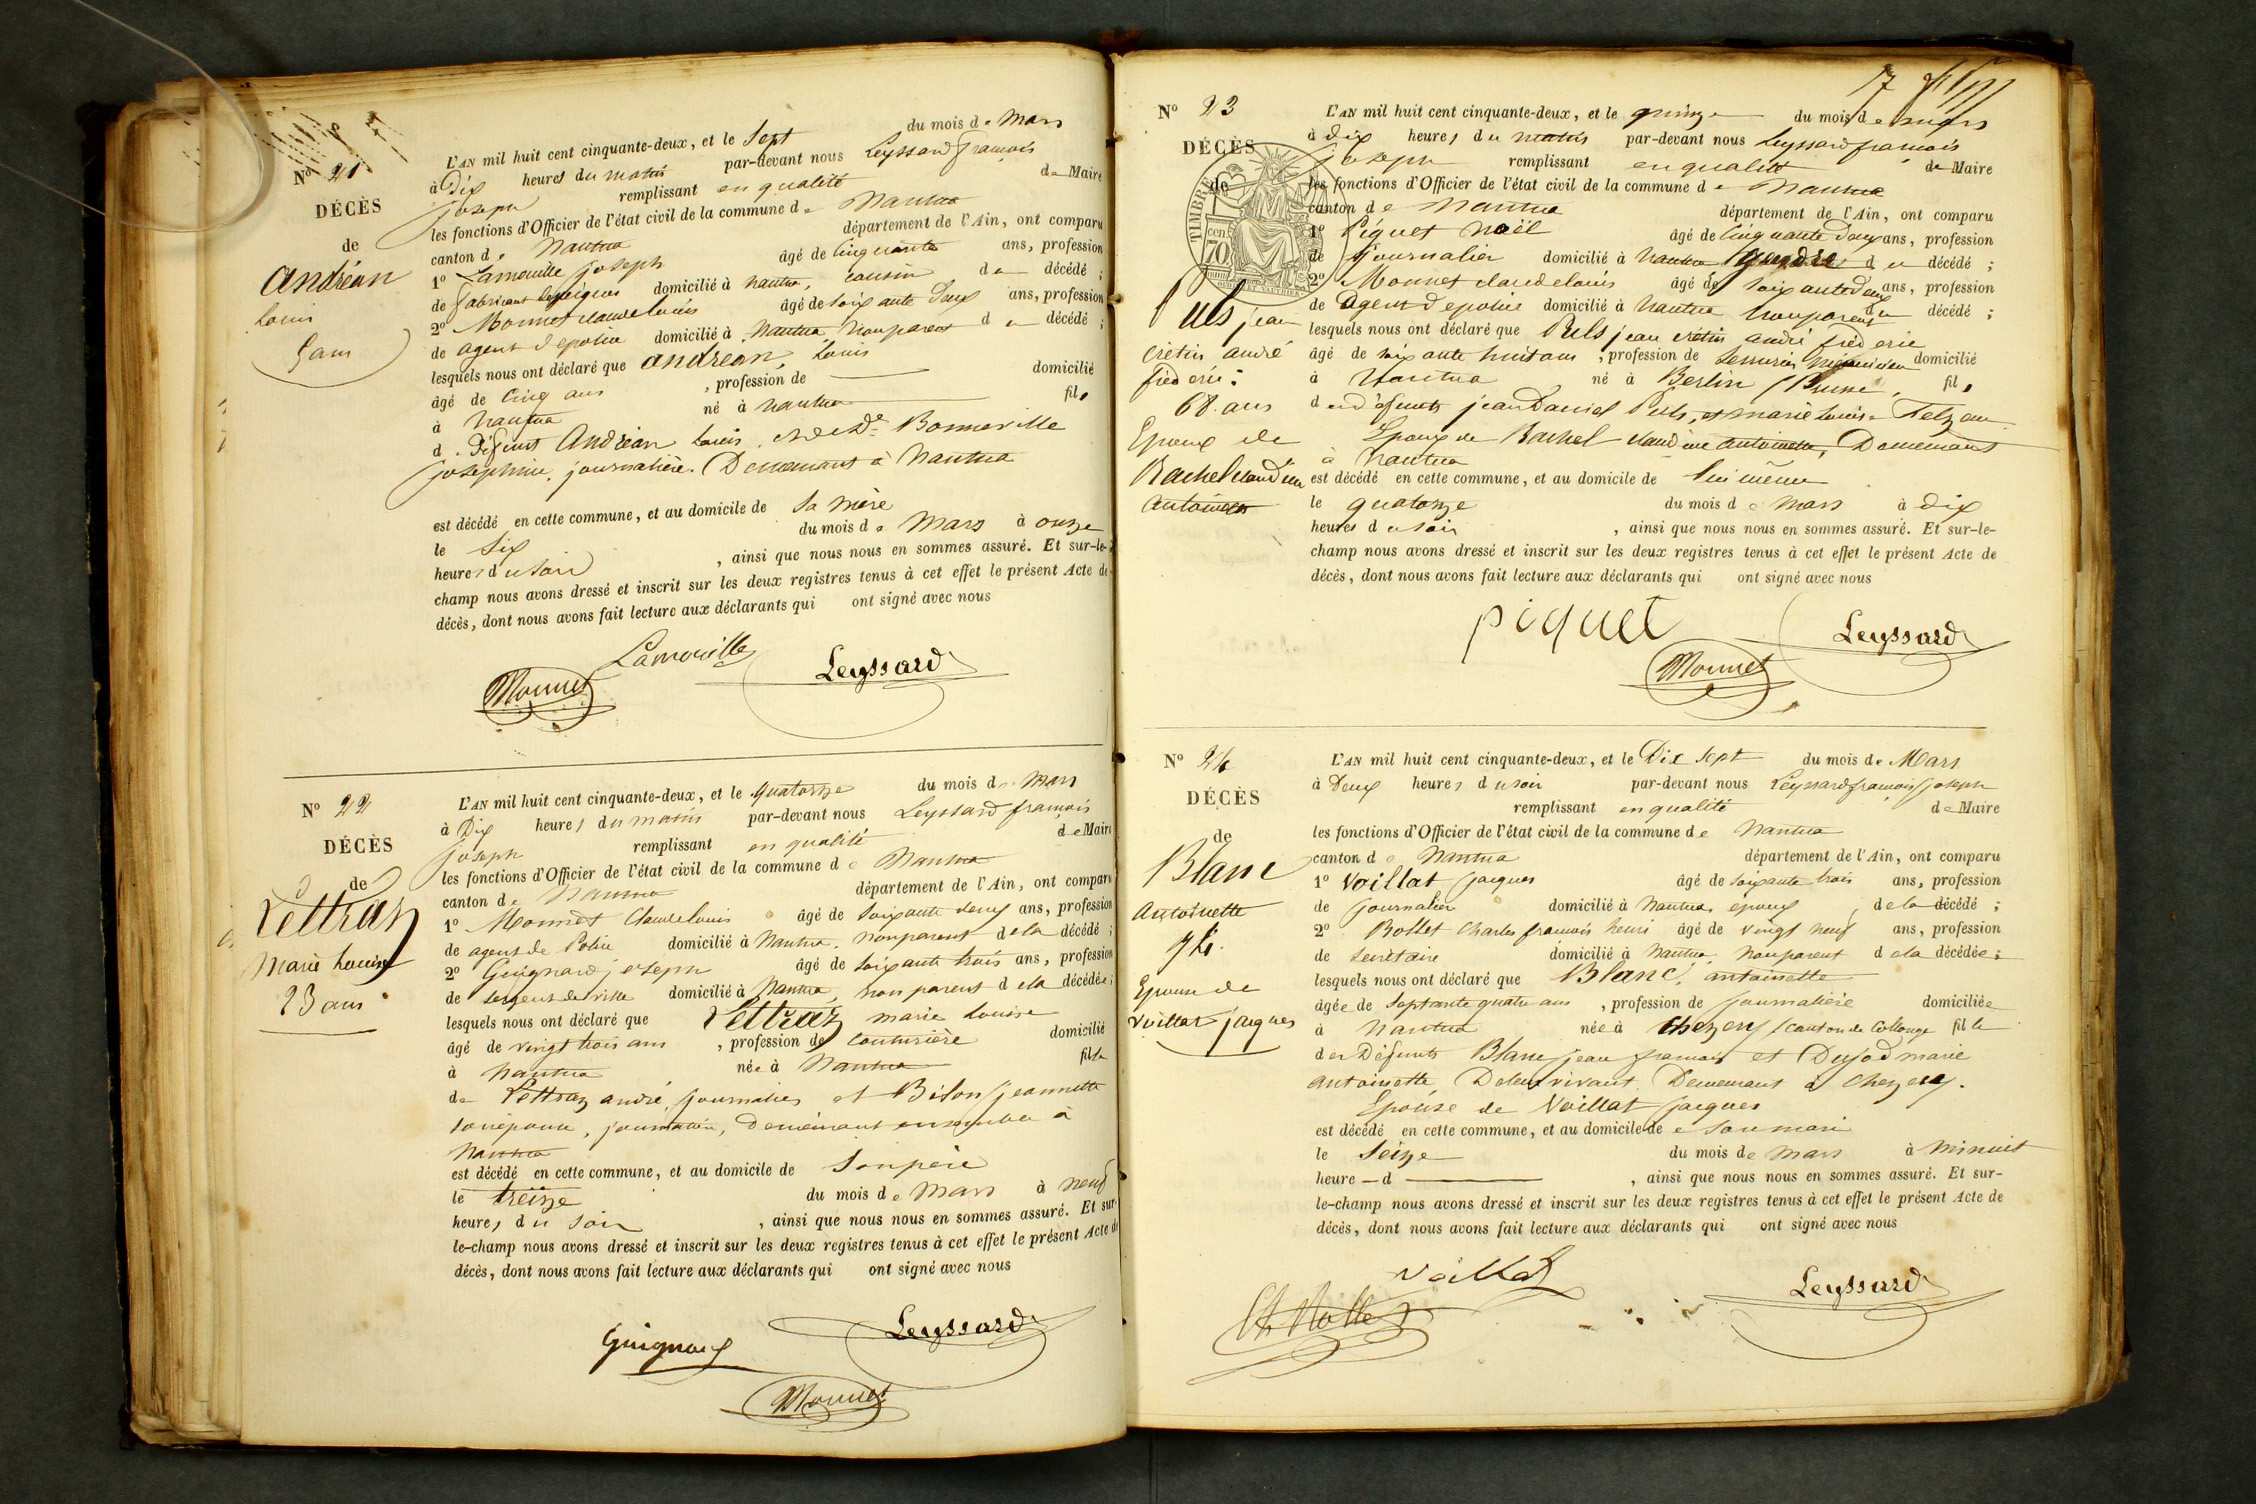 N° 21
DÉCÈS
de
Andréan
Louis
5 ans
L'AN mil huit cent cinquante-deux, et le Sept du mois de Mars
à Dix heures du matin par-devant nous Leyssard françois
joseph remplissant en qualité de Maire
les fonctions d'Officier de l'état civil de la commune de Nantua
canton de Nantua département de l'Ain, ont comparu
1° Lamouille joseph âgé de Cinquante ans, profession
de fabricant de peignes domicilié à nantua, cousin du décédé ;
2° Monnet claude louis âgé de soixante Deux ans, profession
de agent de police domicilié à Nantua, non parent du décédé ;
lesquels nous ont déclaré que Andréan, Louis
âgé de Cinq ans , profession de domicilié
à Nantua né à Nantua fils
d. Défunt Andréan Louis, et de De Bonneville
josephine, journalière. Demeurant à Nantua
est décédé en cette commune, et au domicile de Sa mère
le Six du mois de Mars à onze
heures du soir , ainsi que nous nous en sommes assuré. Et sur-le-
champ nous avons dressé et inscrit sur les deux registres tenus à cet effet le présent Acte de
décès, dont nous avons fait lecture aux déclarants qui ont signé avec nous
Lamouille
Monnet Leyssard
N° 22
DÉCÈS
de
Lettraz
Marie Louise
23 ans
L'AN mil huit cent cinquante-deux, et le quatorze du mois de Mars
à Dix heures du matin par-devant nous Leyssard françois
joseph remplissant en qualité de Maire
les fonctions d'Officier de l'état civil de la commune de Nantua
canton de Nantua département de l'Ain, ont comparu
1° Monnet Claude louis âgé de soixante deux ans, profession
de agent de Police domicilié à Nantua, non parent de la décédé ;
2° Guignard joseph âgé de soixante trois ans, profession
de sergent de ville domicilié à Nantua, non parent de la décédée ;
lesquels nous ont déclaré que Lettraz marie Louise
âgé de vingt trois ans , profession de couturière domicilié
à Nantua née à Nantua fille
de Lettraz andré, journalier et Biton jeannette
son épouse, journalière, Demeurant ensemble à
Nantua
est décédé en cette commune, et au domicile de Son père
le treize du mois de Mars à neuf
heures du soir , ainsi que nous nous en sommes assuré. Et sur-
le-champ nous avons dressé et inscrit sur les deux registres tenus à cet effet le présent Acte de
décès, dont nous avons fait lecture aux déclarants qui ont signé avec nous
Guignard Leyssard
Monnet
17
N° 23
DÉCÈS
de
TIMBRE
70
cen
Puls jean
crétin andré
fréderic
68 ans
Epoux de
Rachel claudine
antoinette
L'AN mil huit cent cinquante-deux, et le quinze du mois de mars
à dix heures du matin par-devant nous Leyssard françois
joseph remplissant en qualité de Maire
les fonctions d'Officier de l'état civil de la commune de Nantua
canton de Nantua département de l'Ain, ont comparu
1° Piquet Noël âgé de Cinquante Deux ans, profession
de journalier domicilié à Nantua gendre du décédé ;
2° Monnet claude louis âgé de soixante deux ans, profession
de Agent de police domicilié à Nantua non parent du décédé ;
lesquels nous ont déclaré que Puls jean crétin andré fréderic
âgé de soixante huit ans , profession de serrurier mécanicien domicilié
à Nantua né à Berlin / Prusse, fils
des défunts jean Daniel Puls, et marie Louise
Epoux de Rachel claudine antoinette, Demeurant
à Nantua
est décédé en cette commune, et au domicile de lui même
le quatorze du mois de mars à dix
heures du soir , ainsi que nous nous en sommes assuré. Et sur-le-
champ nous avons dressé et inscrit sur les deux registres tenus à cet effet le présent Acte de
décès, dont nous avons fait lecture aux déclarants qui ont signé avec nous
piquet Leyssard
Monnet
N° 24
DÉCÈS
de
Blanc
Antoinette
74.
Epouse de
Voillat jacques
L'AN mil huit cent cinquante-deux, et le Dix sept du mois de Mars
à Deux heures du soir par-devant nous Leyssard françois joseph
remplissant en qualité de Maire
les fonctions d'Officier de l'état civil de la commune de Nantua
canton de Nantua département de l'Ain, ont comparu
1° Voillat jacques âgé de soixante trois ans, profession
de journalier domicilié à Nantua, époux de la décédé ;
2° Rollet Charles françois henri âgé de vingt neuf ans, profession
de secrétaire domicilié à Nantua, non parent de la décédée ;
lesquels nous ont déclaré que Blanc, antoinette
âgée de Septante quatre ans , profession de journalière domiciliée
à Nantua née à Chezery / canton de Collonge fille
des Défunts Blanc jean françois et Dujod marie
antoinette, De leur vivant Demeurant à Chezery.
Epouse de Voillat jacques
est décédé en cette commune, et au domicile de son mari
le Seize du mois de mars à minuit
heure d , ainsi que nous nous en sommes assuré. Et sur-
le-champ nous avons dressé et inscrit sur les deux registres tenus à cet effet le présent Acte de
décès, dont nous avons fait lecture aux déclarants qui ont signé avec nous
Voillat Leyssard
Ch Rollet